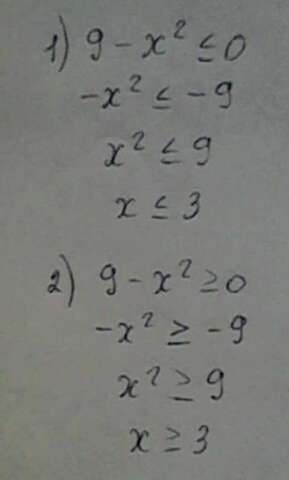 1) 9 - x² ≤ 0
-x² ≤ -9
x² ≤ 9
x ≤ 3
2) 9 - x² ≥ 0
-x² ≥ -9
x² ≥ 9
x ≥ 3